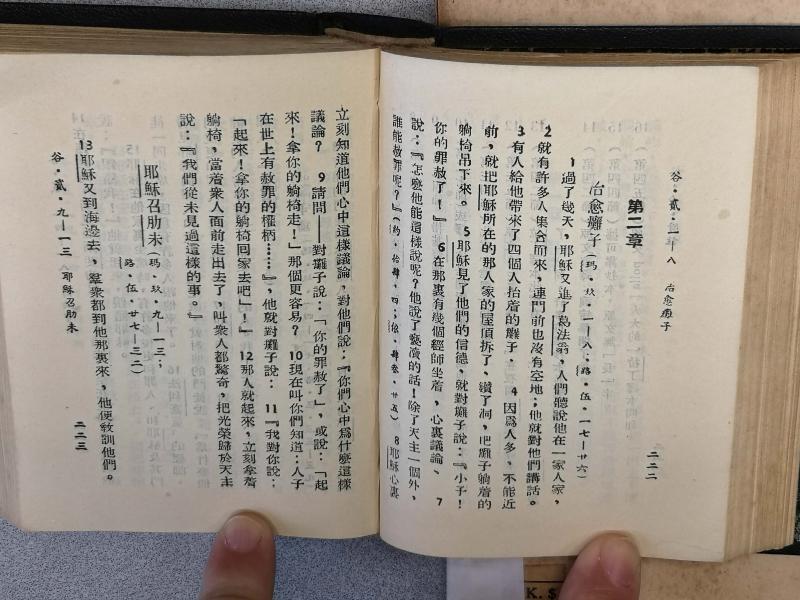 谷·貳·一—八　治愈癱子　二二二
第二章
治愈癱子（瑪·玖·一—八；路·伍·一七—廿六）
1過了幾天，耶穌又進了葛法翁，人們聽說他在一家人家，
2就有許多人集合而來，連門前也沒有空地；他就對他們講話。
3有人給他帶來了四個人抬着的癱子，4因爲人多，不能近
前，就把耶穌所在的那人家的屋頂拆了，鑽了洞，把癱子躺着的
躺椅吊下來。5耶穌見了他們的信德，就對癱子說：『小子！
你的罪赦了！』6在那裏有幾個經師坐着，心裏議論、7
說：『怎麼他能這樣說呢？他說了褻瀆的話！除了天主一個外，
誰能赦罪呢？』（約·拾肆·四；依·肆叁·廿五）8耶穌心裏
立刻知道他們心中這樣議論，對他們說：『你們心中爲什麼這樣
議論？9請問——對癱子說：「你的罪赦了」，或說：「起
來！拿你的躺椅走！」那個更容易？10現在叫你們知道：人子
在世上有赦罪的權柄……』，他就對癱子說：11『我對你說：
「起來！拿你的躺椅回家去吧」！』12那人就起來，立刻拿着
躺椅，當着衆人面前走出去了，叫衆人都驚奇，把光榮歸於天主
說：『我們從未見過這樣的事。』
耶穌召肋未（瑪·玖·九—一三；
路·伍·廿七—三二）
13耶穌又到海邊去，羣衆都到他那裏來，他便敎訓他們。
谷·貳·九—一三　耶穌召肋未　二二三
K. $